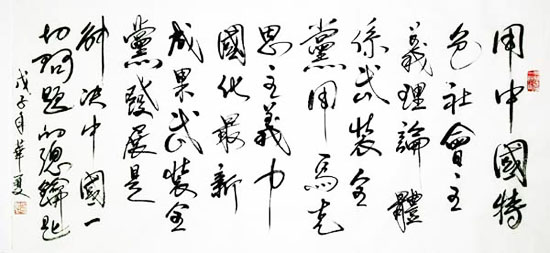 用中國特
色社會主
義理論體
系武裝全
黨用馬克
思主義中
國化最新
成果武裝全
黨發展是
解決中國一
切問題的總鑰匙
戊子年華夏